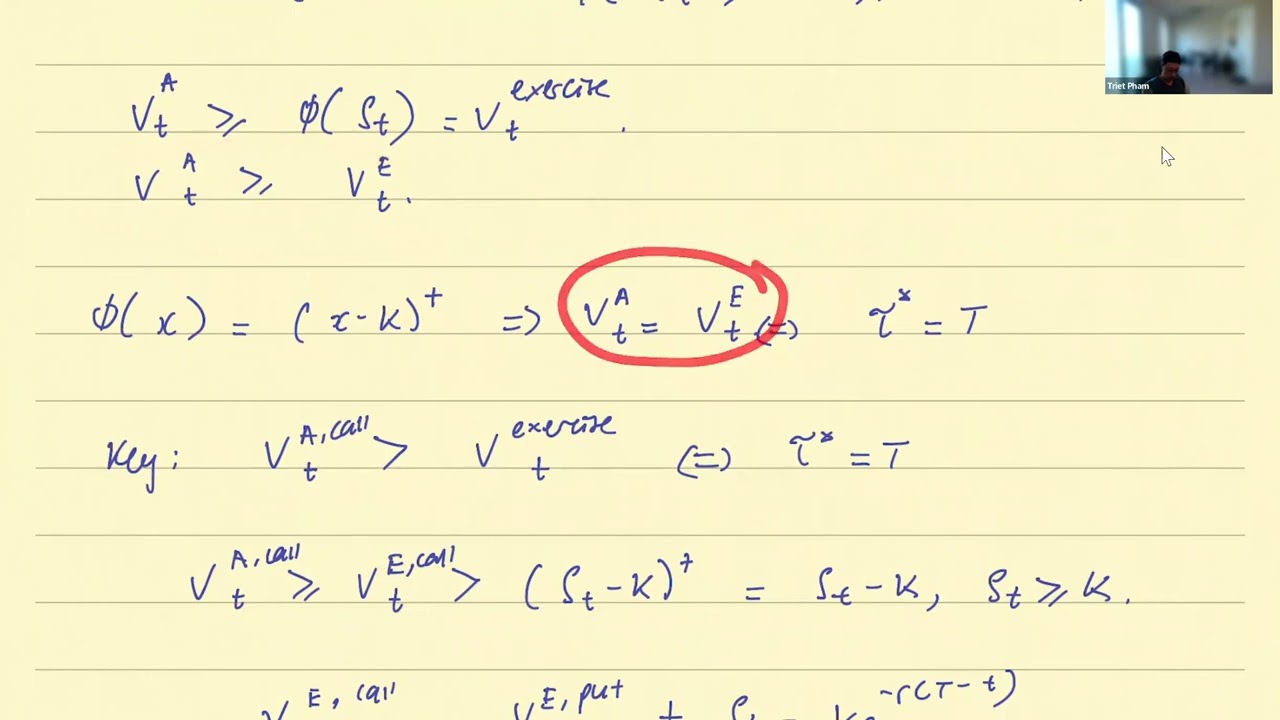 Triet Pham
V_t^A ≥ φ(S_t) = V_t^exercise .
V_t^A ≥ V_t^E .
φ(x) = (x-K)^+ => V_t^A = V_t^E (=) τ^* = T
Key: V_t^{A, call} > V_t^exercise (=) τ^* = T
V_t^{A, call} ≥ V_t^{E, call} > (S_t - K)^+ = S_t - K, S_t ≥ K.
V^{E, call} V^{E, put} + S - Ke^{-r(T-t)}